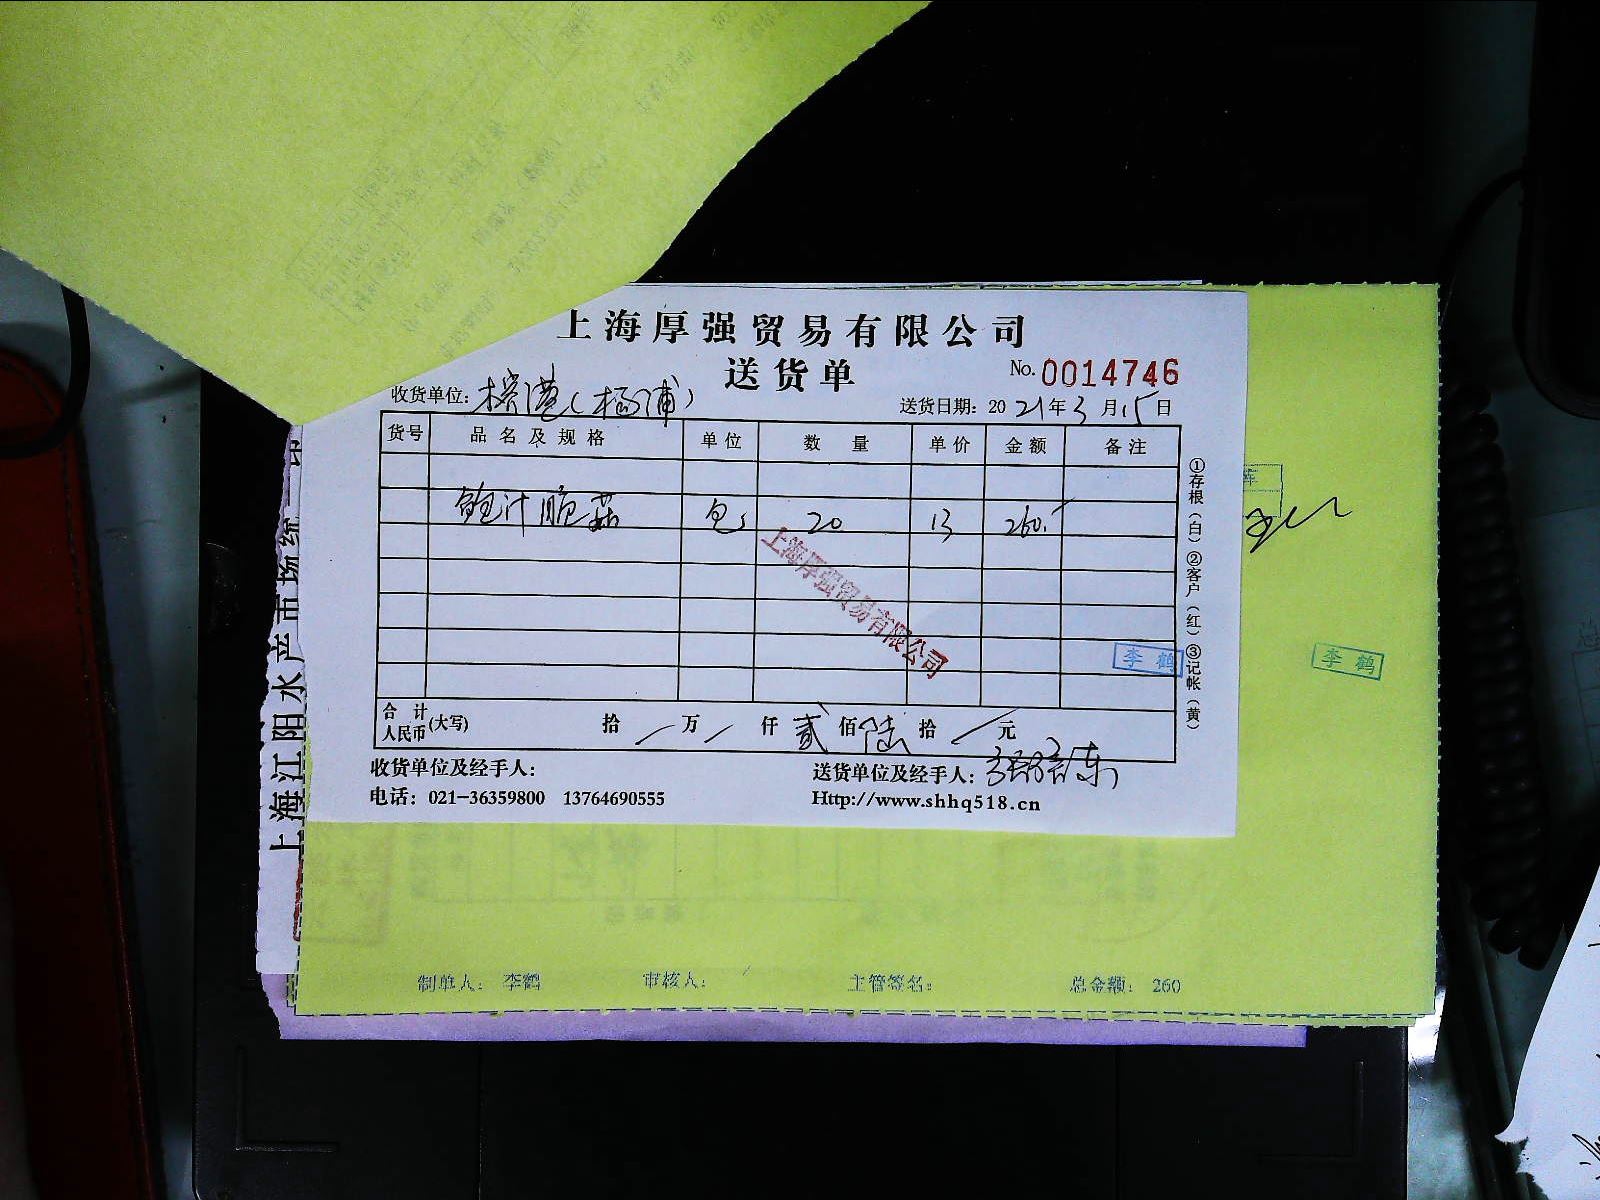 上海厚强贸易有限公司
送货单
No. 0014746
收货单位：榕港（杨浦）
送货日期：2021年3月15日
货号 品名及规格 单位 数量 单价 金额 备注
鲍汁脆菇 包 20 13 260.-
上海厚强贸易有限公司
李鹤 李鹤
①存根（白）②客户（红）③记帐（黄）
合计人民币(大写) 拾 / 万 / 仟 贰 佰 陆 拾 / 元
收货单位及经手人：
送货单位及经手人：
电话：021-36359800 13764690555
Http://www.shhq518.cn
上海江阳水产市场统一
制单人：李鹤 审核人： 主管签名： 总金额：260